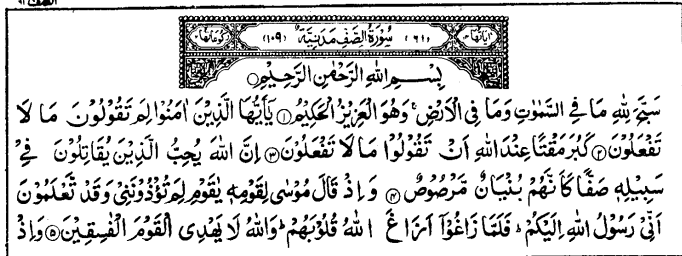 الصف ٦١
اياتها ١٤ (٦١) سُوْرَةُ الصَّفِّ مَدَنِيَّةٌ (١٠٩) ركوعاتها ٢
بِسْمِ اللهِ الرَّحْمٰنِ الرَّحِيْمِ
سَبَّحَ لِلّٰهِ مَا فِي السَّمٰوٰتِ وَمَا فِي الْاَرْضِ ۚ وَهُوَ الْعَزِيْزُ الْحَكِيْمُ ﴿١﴾ يٰۤاَيُّهَا الَّذِيْنَ اٰمَنُوْا لِمَ تَقُوْلُوْنَ مَا لَا
تَفْعَلُوْنَ ﴿٢﴾ كَبُرَ مَقْتًا عِنْدَ اللهِ اَنْ تَقُوْلُوْا مَا لَا تَفْعَلُوْنَ ﴿٣﴾ اِنَّ اللهَ يُحِبُّ الَّذِيْنَ يُقَاتِلُوْنَ فِيْ
سَبِيْلِهٖ صَفًّا كَاَنَّهُمْ بُنْيَانٌ مَّرْصُوْصٌ ﴿٤﴾ وَاِذْ قَالَ مُوْسٰى لِقَوْمِهٖ يٰقَوْمِ لِمَ تُؤْذُوْنَنِيْ وَقَدْ تَّعْلَمُوْنَ
اَنِّيْ رَسُوْلُ اللهِ اِلَيْكُمْ ؕ فَلَمَّا زَاغُوْۤا اَزَاغَ اللهُ قُلُوْبَهُمْ ؕ وَاللهُ لَا يَهْدِى الْقَوْمَ الْفٰسِقِيْنَ ﴿٥﴾ وَاِذْ